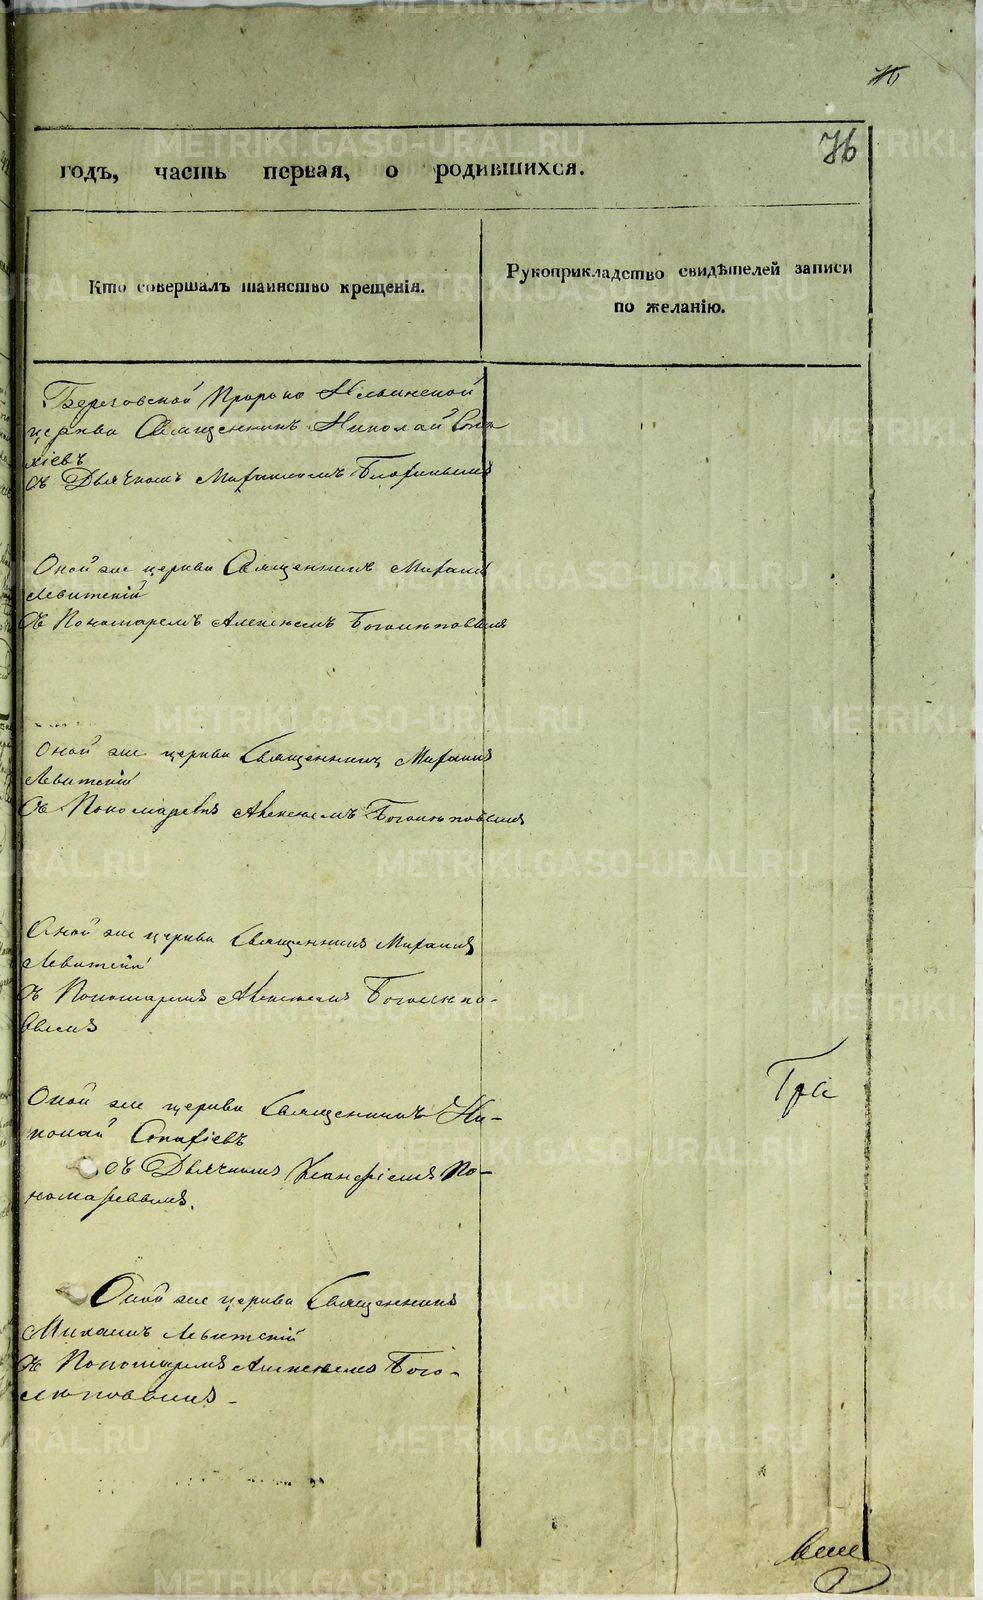 76
годъ, часть первая, о родившихся.
Кто совершалъ таинство крещенія.
Рукоприкладство свидѣтелей записи
по желанію.
Береговской Пророко Ильинской
церкви Священникъ Николай
съ Дьячкомъ
Оной же церкви Священникъ Михаилъ
Левитскій
съ Пономаремъ Алексѣемъ Боголюповымъ
Оной же церкви Священникъ Михаилъ
Левитскій
съ Пономаремъ Алексѣемъ Боголюповымъ
Оной же церкви Священникъ Михаилъ
Левитскій
съ Пономаремъ Алексѣемъ Боголюпо-
вымъ
Оной же церкви Священникъ Ни-
колай
съ Дьячкомъ По-
номаревымъ.
Оной же церкви Священникъ
Михаилъ Левитскій
съ Пономаремъ Алексѣемъ Бого-
люповымъ
METRIKI.GASO-URAL.RU